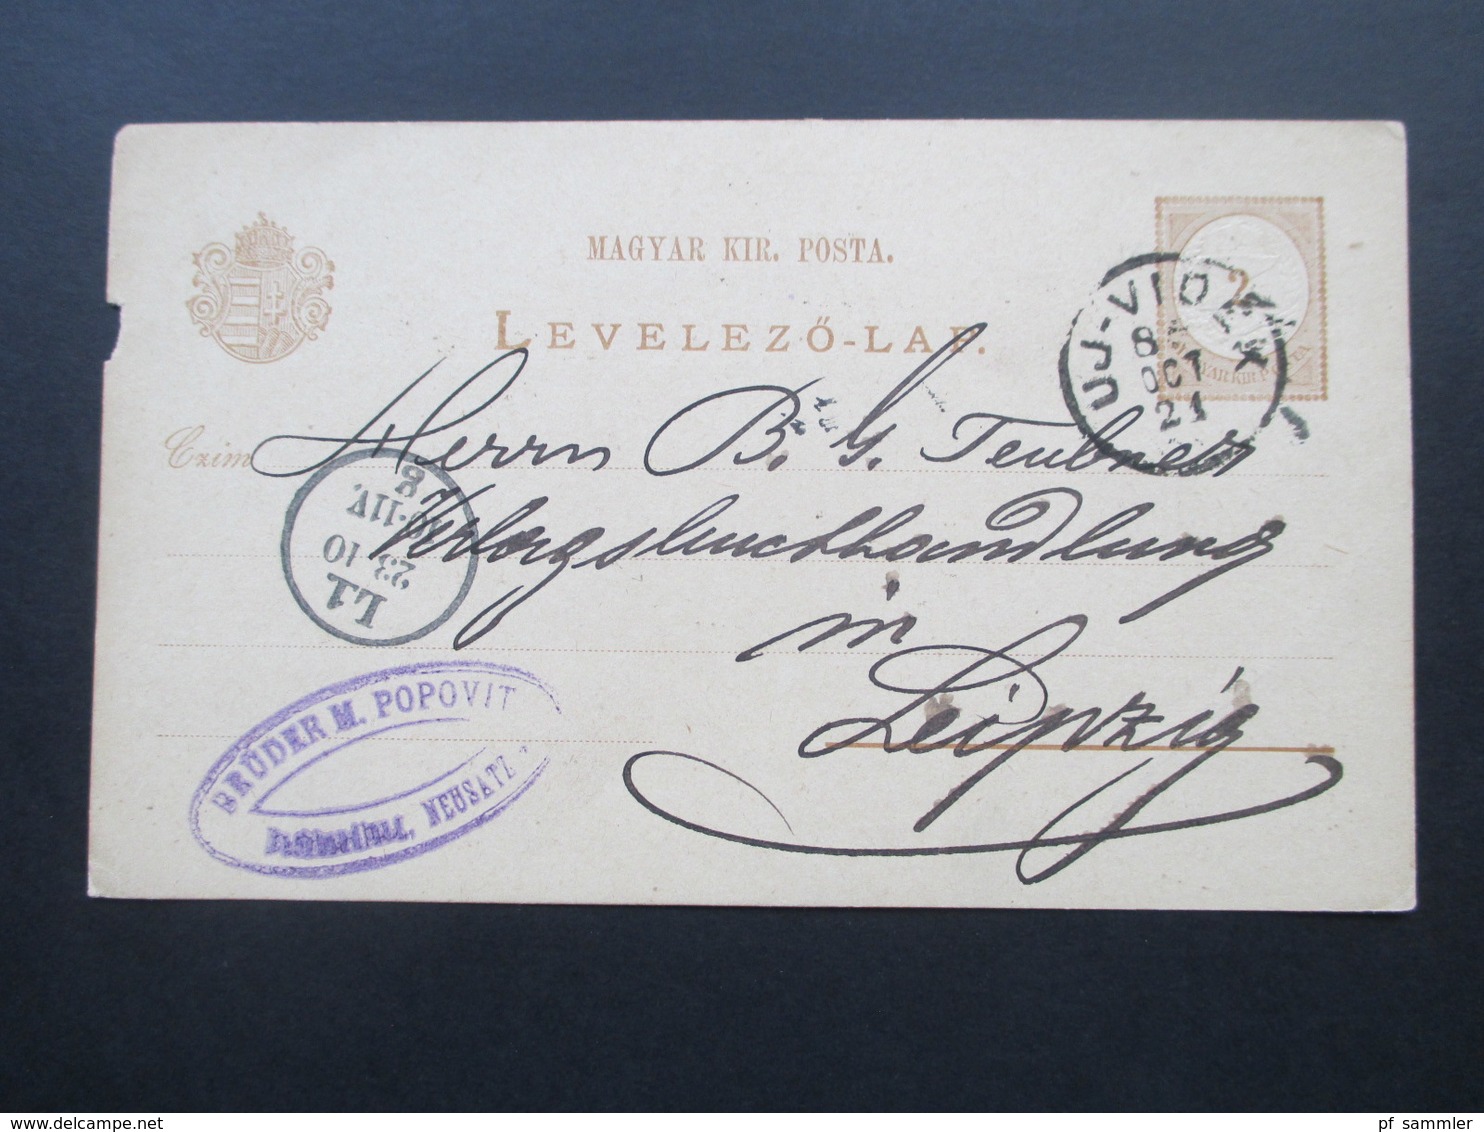 MAGYAR KIR. POSTA.
LEVELEZŐ-LAP.
2
MAGYAR KIR. POSTA
UJ-VID
OCT
21
Czim
Herrn B. G. Teubner
Verlagsbuchhandlung
in
Leipzig
L1
23 10
8
BRÜDER M. POPOVIT
NEUSATZ.
delcampe.net
pf_sammler